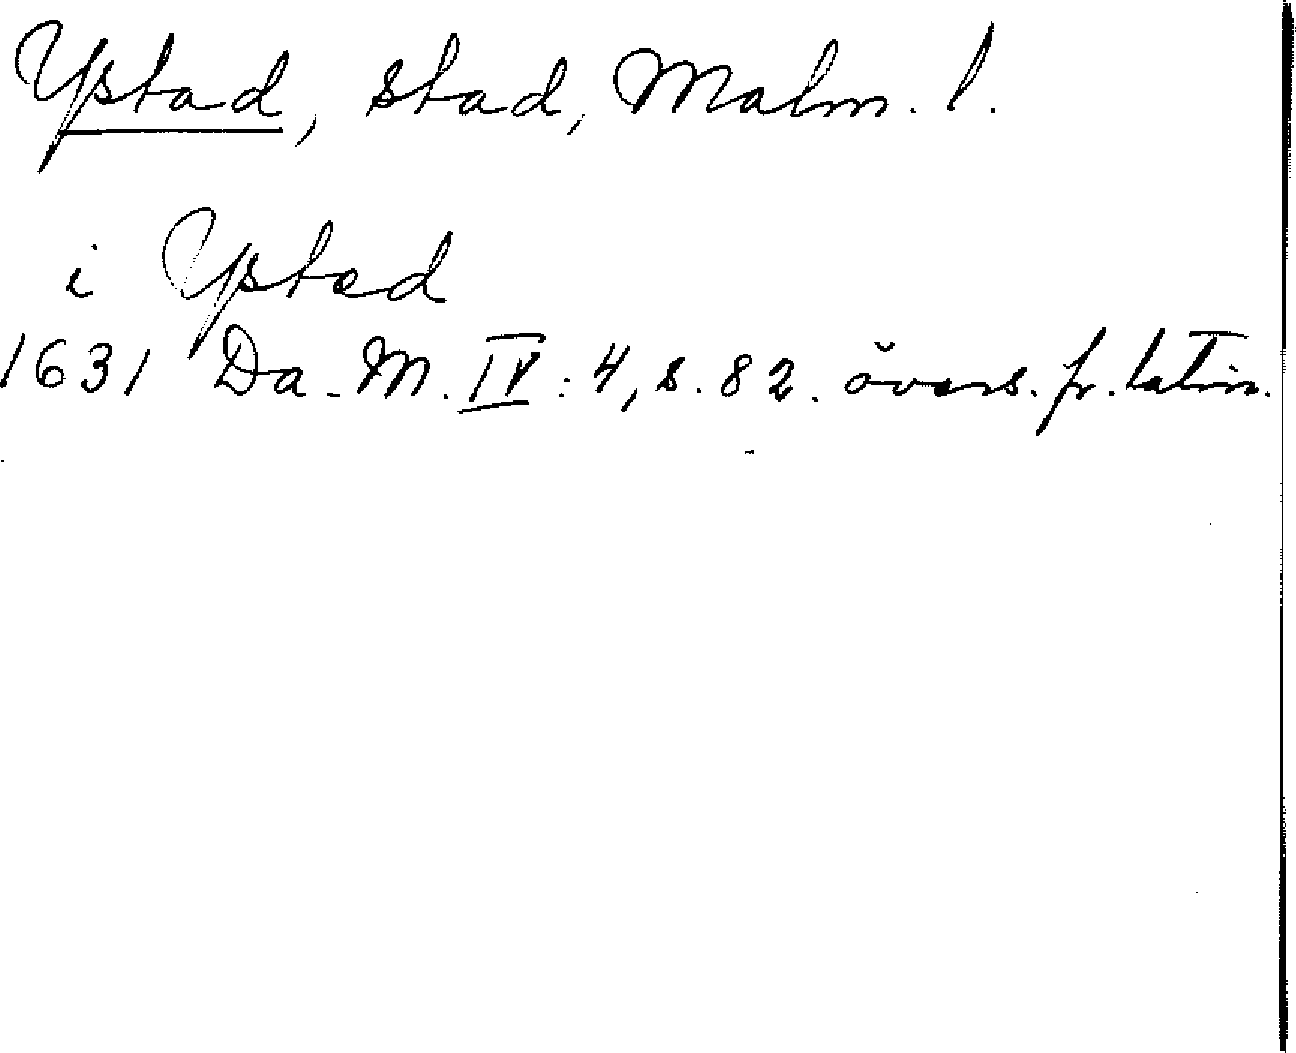 Ystad, stad, Malm. l.
i Ysted
1631 Da. M. IV: 4, s. 82. övers. fr. latin.